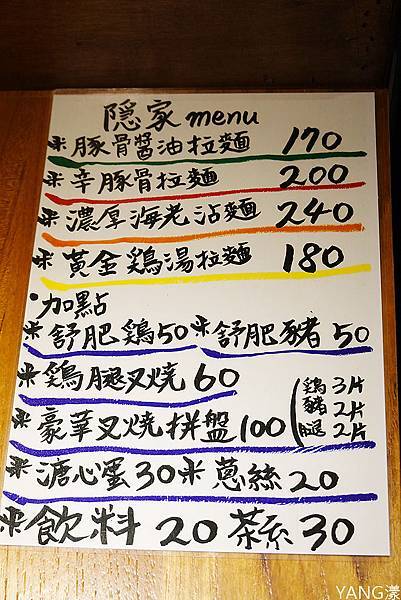 隠家menu
※豚骨醬油拉麵 170
※辛豚骨拉麵 200
※濃厚海老沾麵 240
※黃金鶏湯拉麵 180
•加點
※舒肥鶏50 ※舒肥豬 50
※鶏腿叉燒 60
※豪華叉燒拼盤100
鶏 3片
豬 2片
腿 2片
※溏心蛋30 ※蔥絲 20
※飲料 20 茶系 30
YANG漾